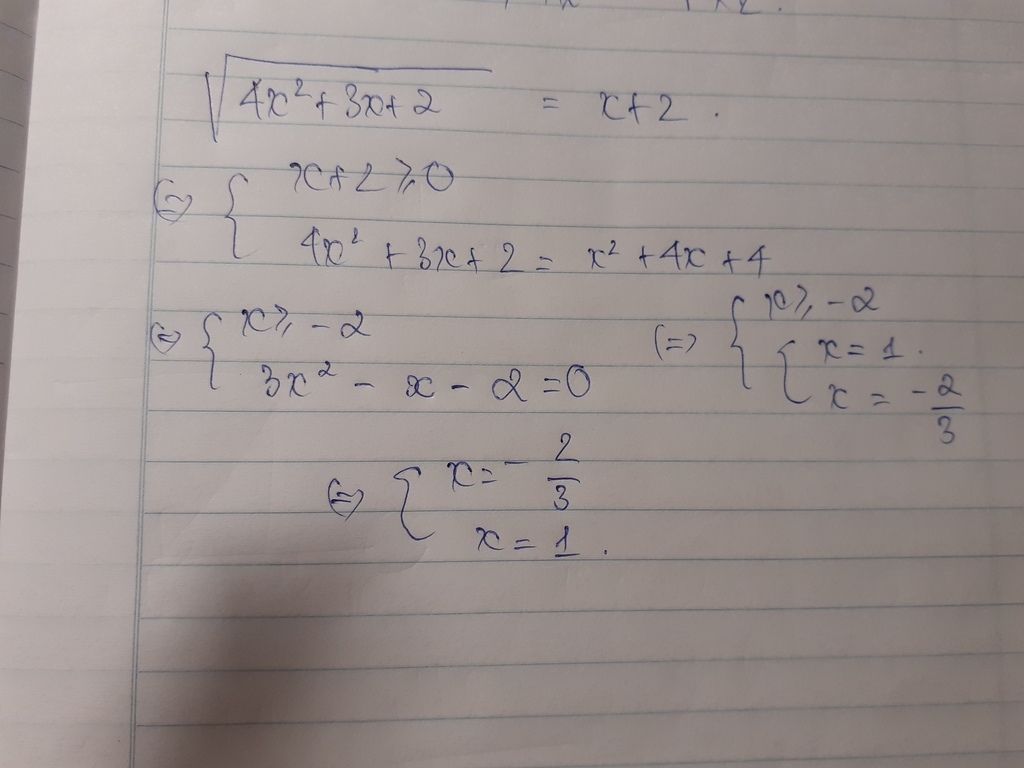 √(4x²+3x+2) = x+2 .
(=) { x+2 ⩾ 0
4x² + 3x + 2 = x² + 4x + 4
(=) { x ⩾ -2
3x² - x - 2 = 0
(=) { x ⩾ -2
{ x = 1 .
x = -2/3
(=) { x = -2/3
x = 1 .